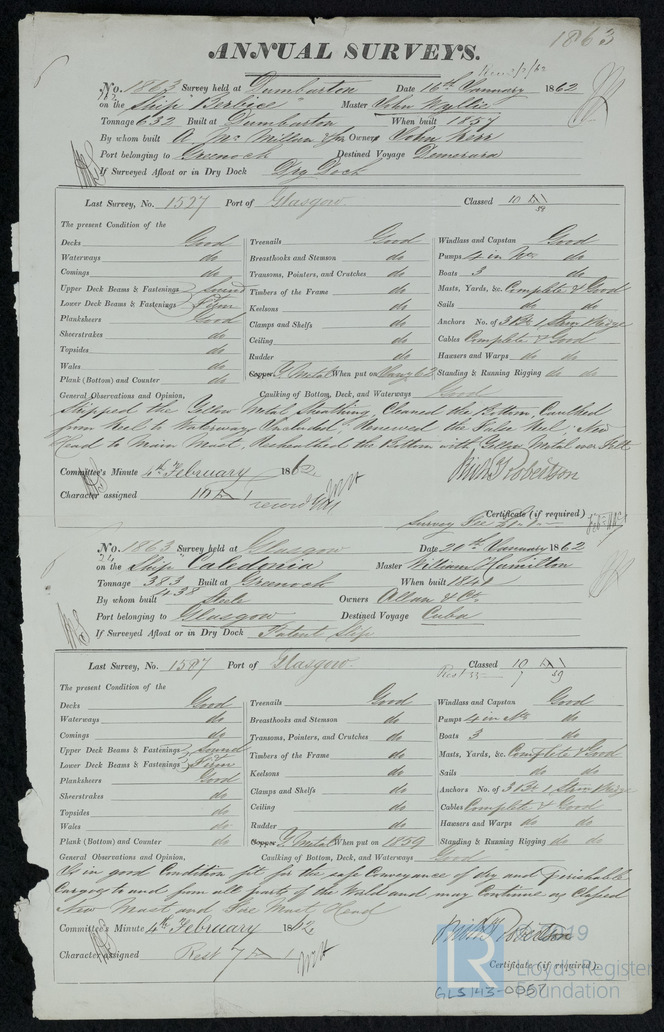 1863
ANNUAL SURVEYS.
No. 1863 Survey held at Dumbarton Date 16th January 1862
on the Ship "Berbice" Master John Wyllie
Tonnage 632 Built at Dumbarton When built 1857
By whom built A. McMillan & Son Owners John Kerr
Port belonging to Greenock Destined Voyage Demerara
If Surveyed Afloat or in Dry Dock Dry Dock
Last Survey, No. 1527 Port of Glasgow Classed 10 A 1
59
The present Condition of the
Decks Good Treenails Good Windlass and Capstan Good
Waterways do Breasthooks and Stemson do Pumps 4 in No. do
Comings do Transoms, Pointers, and Crutches do Boats 3 do
Upper Deck Beams & Fastenings Sound Timbers of the Frame do Masts, Yards, &c. Complete & Good
Lower Deck Beams & Fastenings Firm Keelsons do Sails do do
Planksheers Good Clamps and Shelfs do Anchors No. of 3 Br 1 Stm
Sheerstrakes do Ceiling do Cables Complete & Good
Topsides do Rudder do Hawsers and Warps do do
Wales do Copper Y. Metal When put on 62 Standing & Running Rigging do do
Plank (Bottom) and Counter do
General Observations and Opinion, Caulking of Bottom, Deck, and Waterways Good
Stripped the Yellow Metal Sheathing, Cleaned the Bottom, Caulked
from Keel to Waterways Included, Renewed the False Keel, New
Head to Main Mast, Resheathed the Bottom with Yellow Metal over Felt
Committee's Minute 4th February 1862 Robertson
Character assigned 10 A 1
Certificate (if required)
Survey Fee
No. 1863 Survey held at Glasgow Date 20th January 1862
on the Ship "Caledonia" Master William Hamilton
Tonnage 383 Built at Greenock When built 1840
438
By whom built Steele Owners Allan & Co.
Port belonging to Glasgow Destined Voyage Cuba
If Surveyed Afloat or in Dry Dock Patent Slip
Last Survey, No. 1587 Port of Glasgow Classed 10 A 1
Rest 7 59
The present Condition of the
Decks Good Treenails Good Windlass and Capstan Good
Waterways do Breasthooks and Stemson do Pumps 4 in No. do
Comings do Transoms, Pointers, and Crutches do Boats 3 do
Upper Deck Beams & Fastenings Sound Timbers of the Frame do Masts, Yards, &c. Complete & Good
Lower Deck Beams & Fastenings Firm Keelsons do Sails do do
Planksheers Good Clamps and Shelfs do Anchors No. of 3 Br 1 Stm
Sheerstrakes do Ceiling do Cables Complete & Good
Topsides do Rudder do Hawsers and Warps do do
Wales do Copper Y. Metal When put on 1859 Standing & Running Rigging do do
Plank (Bottom) and Counter do
General Observations and Opinion, Caulking of Bottom, Deck, and Waterways Good
Is in good Condition fit for the safe Conveyance of dry and perishable
Cargoes to and from all parts of the World and may Continue as Classed
New Mast and Fore Mast Head
Committee's Minute 4th February 1862 Robertson
Character assigned Rest 7 A 1
Certificate (if required)
LR
2019
Lloyd's Register
Foundation
GLS143-0057